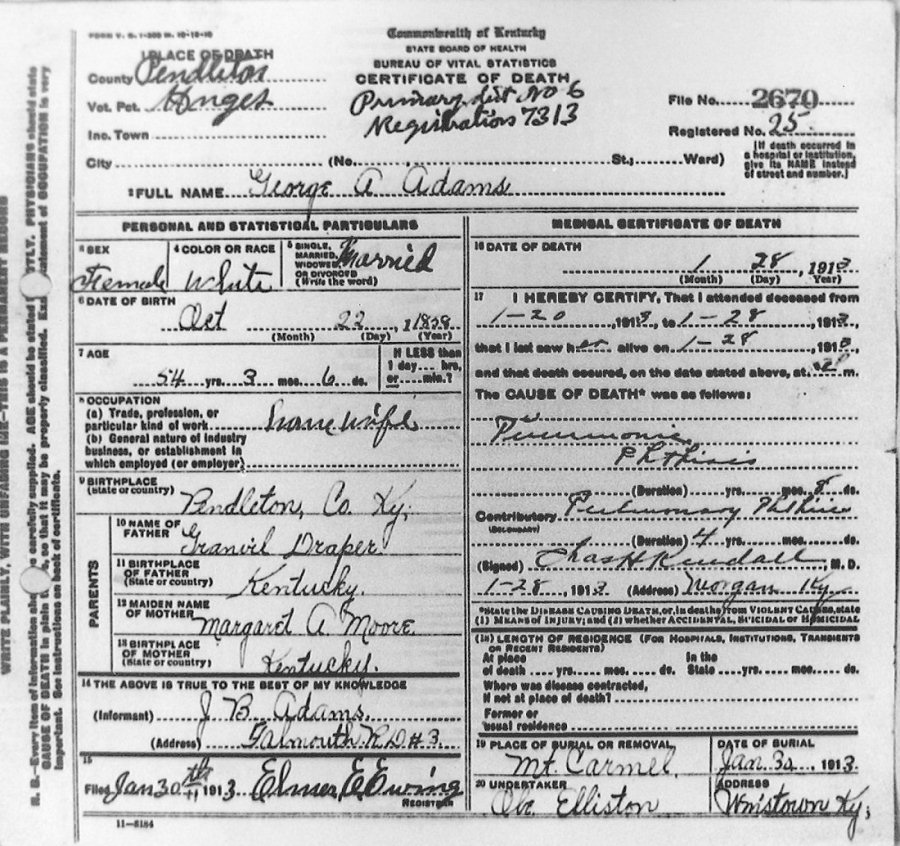 FORM V. S. 1-200 M. 10-15-10
Commonwealth of Kentucky
STATE BOARD OF HEALTH
BUREAU OF VITAL STATISTICS
CERTIFICATE OF DEATH
1 PLACE OF DEATH
County Pendleton
Vot. Pct. Hinges
Inc. Town
Primary dist No 6
Registration 7313
File No. 2670
Registered No. 25
City (No. St.; Ward)
[If death occurred in a hospital or institution, give its NAME instead of street and number.]
2 FULL NAME George A Adams
PERSONAL AND STATISTICAL PARTICULARS
3 SEX
Female
4 COLOR OR RACE
White
5 SINGLE, MARRIED, WIDOWED OR DIVORCED (Write the word)
Married
6 DATE OF BIRTH
Oct 22, 1858
(Month) (Day) (Year)
7 AGE
54 yrs. 3 mos. 6 ds.
If LESS than
1 day hrs.
or min.?
8 OCCUPATION
(a) Trade, profession, or
particular kind of work House Wife
(b) General nature of industry
business, or establishment in
which employed (or employer)
9 BIRTHPLACE
(State or country)
Pendleton, Co. Ky.
PARENTS
10 NAME OF FATHER
Granvil Draper
11 BIRTHPLACE OF FATHER
(State or country)
Kentucky.
12 MAIDEN NAME OF MOTHER
Margaret A Moore.
13 BIRTHPLACE OF MOTHER
(State or country)
Kentucky.
14 THE ABOVE IS TRUE TO THE BEST OF MY KNOWLEDGE
(Informant) J B Adams.
(Address) Falmouth R D #3.
15
Filed Jan 30th 1913 Elmer E Ewing
REGISTRAR
11-8184
MEDICAL CERTIFICATE OF DEATH
16 DATE OF DEATH
1 28, 1913
(Month) (Day) (Year)
17 I HEREBY CERTIFY, That I attended deceased from
1-20, 1913, to 1-28, 1913,
that I last saw her alive on 1-28, 1913,
and that death occured, on the date stated above, at m.
The CAUSE OF DEATH* was as follows:
Pneumonic
Phthisis
(Duration) yrs. mos. 8 ds.
Contributory Pulmonary Phthisis
(SECONDARY)
(Duration) 4 yrs. mos. ds.
(Signed) Chas H Kendall, M. D.
1-28, 1913 (Address) Morgan Ky
*State the DISEASE CAUSING DEATH, or, in deaths from VIOLENT CAUSES, state
(1) MEANS OF INJURY; and (2) whether ACCIDENTAL, SUICIDAL or HOMICIDAL
(18) LENGTH OF RESIDENCE (FOR HOSPITALS, INSTITUTIONS, TRANSIENTS
OR RECENT RESIDENTS)
At place In the
of death yrs. mos. ds. State yrs. mos. ds.
Where was disease contracted,
if not at place of death?
Former or
usual residence
19 PLACE OF BURIAL OR REMOVAL
Mt. Carmel.
DATE OF BURIAL
Jan. 30, 1913.
20 UNDERTAKER
Elliston
ADDRESS
Ky;
WRITE PLAINLY, WITH UNFADING INK—THIS IS A PERMANENT RECORD
N. B.—Every item of information should be carefully supplied. AGE should be stated EXACTLY. PHYSICIANS should state
CAUSE OF DEATH in plain terms, so that it may be properly classified. Exact statement of OCCUPATION is very
important. See instructions on back of certificate.